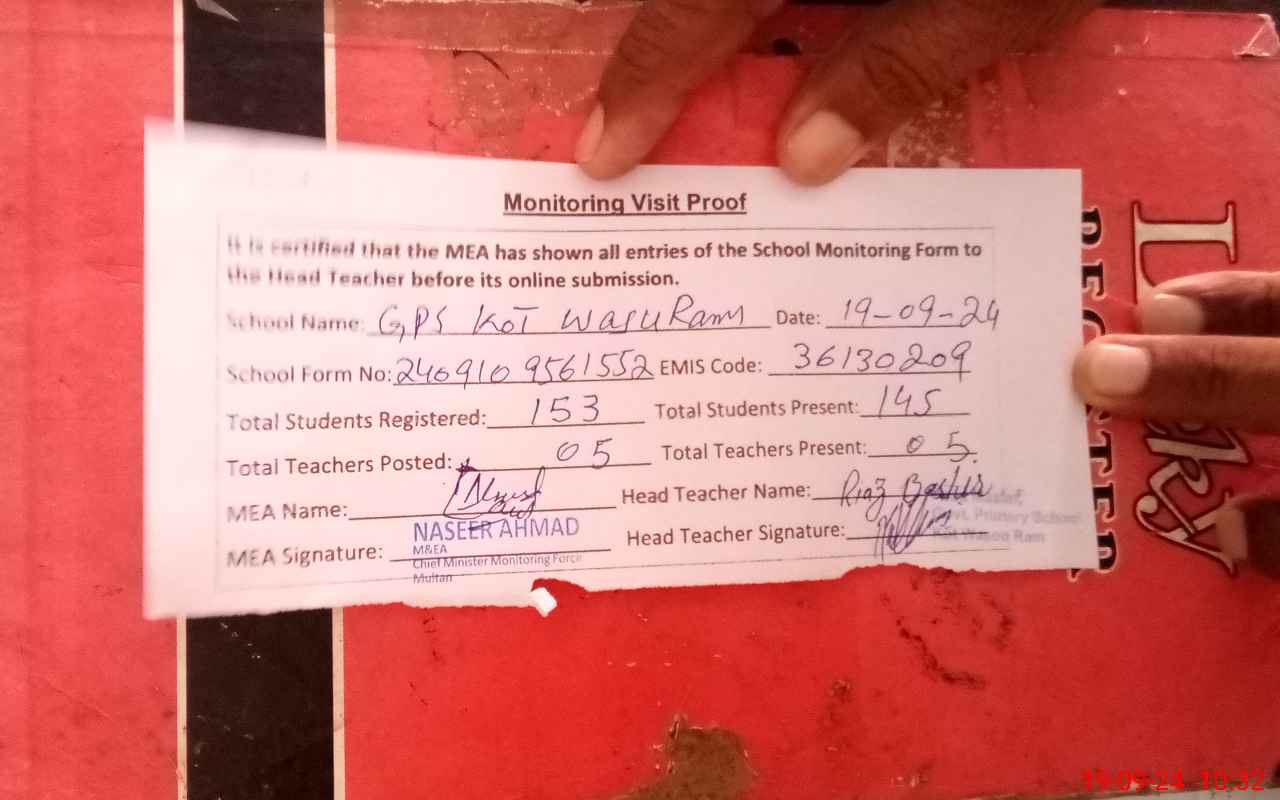 Monitoring Visit Proof
It is certified that the MEA has shown all entries of the School Monitoring Form to
the Head Teacher before its online submission.
School Name: GPS KOT WASU Ram Date: 19-09-24
School Form No: 2409109561552 EMIS Code: 36130209
Total Students Registered: 153 Total Students Present: 145
Total Teachers Posted: 05 Total Teachers Present: 05.
MEA Name: Head Teacher Name: Riaz Bashir
NASEER AHMAD
MEA Signature: Head Teacher Signature:
M&EA
Chief Minister Monitoring Force
Multan
Govt. Primary School
Kot Wasoo Ram
REGISTER
19-09-24 10:32